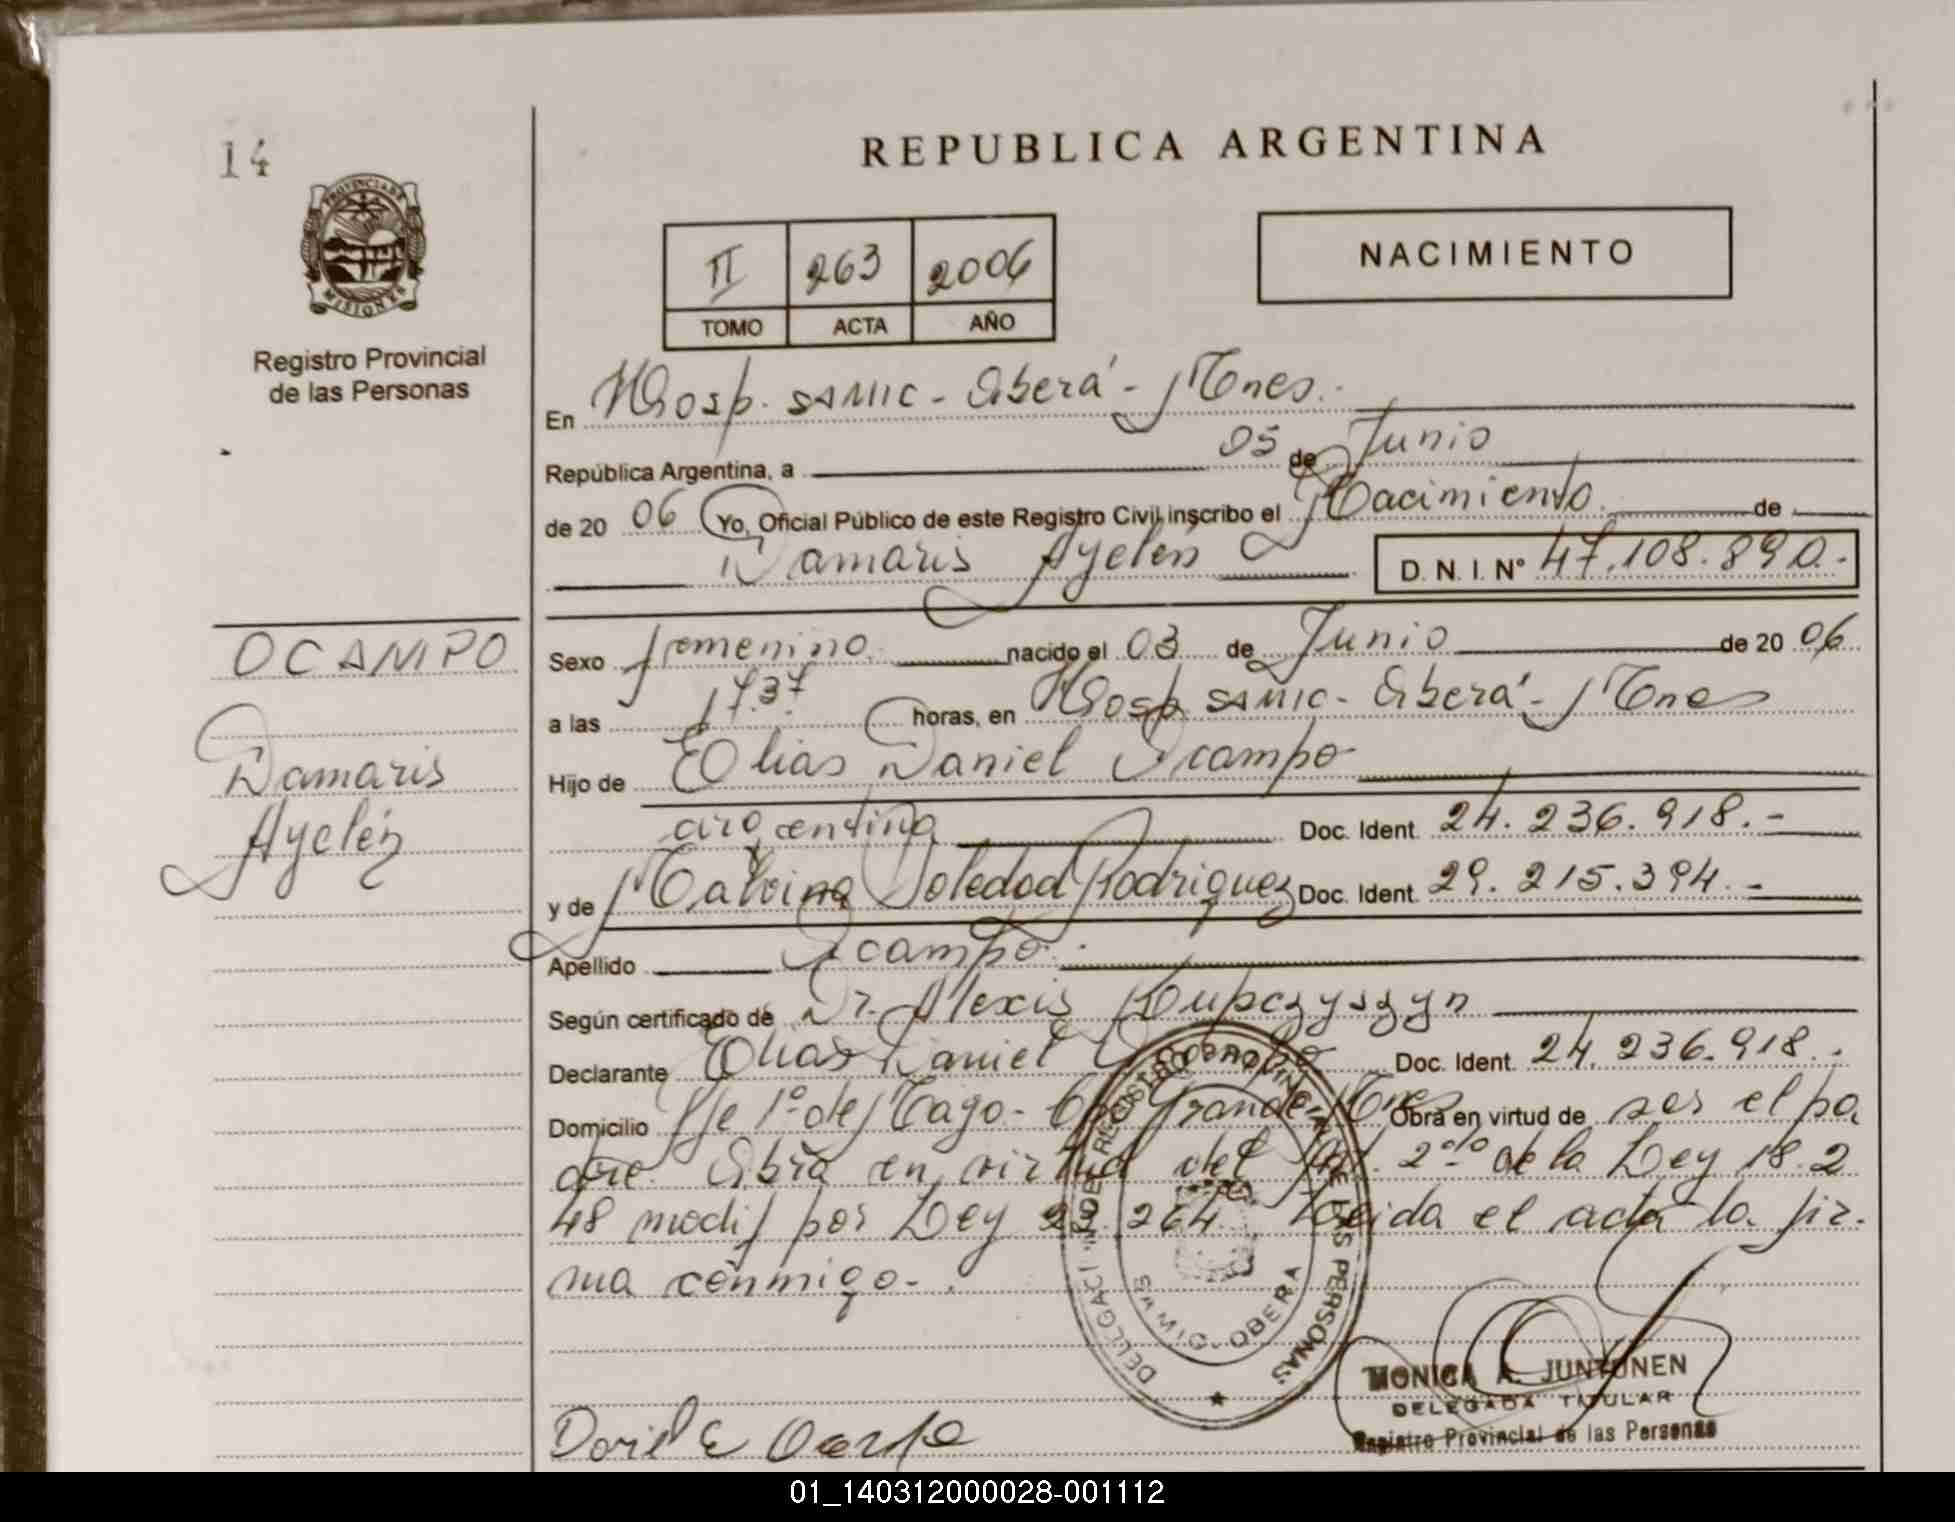 14
REPUBLICA ARGENTINA
PROVINCIA DE
MISIONES
Registro Provincial
de las Personas
II 263 2006
TOMO ACTA AÑO
NACIMIENTO
En Hosp. SAMIC - Oberá - Mnes.
República Argentina, a 05 de Junio
de 20 06 Yo, Oficial Público de este Registro Civil inscribo el Nacimiento de
Damaris Ayelén D. N. I. N° 47.108.890.-
OCAMPO
Damaris
Ayelén
Sexo femenino nacido el 03 de Junio de 20 06
a las 17.37 horas, en Hosp SAMIC - Oberá - Mnes
Hijo de Elias Daniel Ocampo
argentina Doc. Ident. 24.236.918.-
y de Malvina Soledad Rodriguez Doc. Ident. 29.215.394.-
Apellido Ocampo.
Según certificado de Dr. Alexis Kupczyszyn
Declarante Elias Daniel Ocampo Doc. Ident. 24.236.918.
Domicilio Pje 1° de Mayo - Grande - Mnes Obra en virtud de ser el pa
dre. Obra en virtud del Art. 2° de la Ley 18.2
48 modif por Ley 264. Leida el acta la fir-
ma conmigo-.
REGISTRO PROVINCIAL DE LAS PERSONAS
OBERA
MONICA A. JUNTUNEN
DELEGADA TITULAR
Registro Provincial de las Personas
01_140312000028-001112